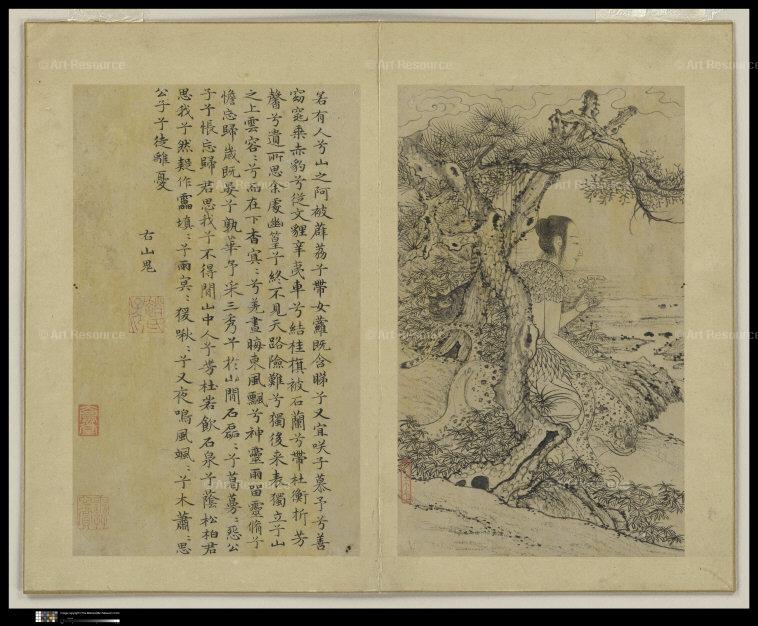 若有人兮山之阿被薜荔兮帶女蘿既含睇兮又宜咲子慕予兮善
窈窕乘赤豹兮從文貍辛夷車兮結桂旗被石蘭兮帶杜衡折芳
馨兮遺所思余處幽篁兮終不見天路險難兮獨後來表獨立兮山
之上雲容〻兮而在下杳冥〻兮羌晝晦東風飄兮神靈雨留靈脩兮
憺忘歸歲既晏兮孰華予采三秀兮於山間石磊〻兮葛蔓〻怨公
子兮悵忘歸君思我兮不得閒山中人兮芳杜若飲石泉兮蔭松柏君
思我兮然疑作靁填〻兮雨冥〻猨啾〻兮又夜鳴風颯〻兮木蕭〻思
公子兮徒離憂
右山鬼
© Art Resource